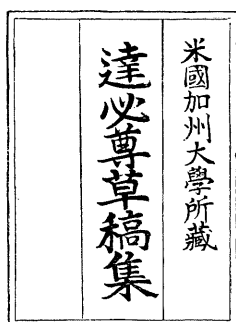 米國加州大學所藏
達必尊草稿集